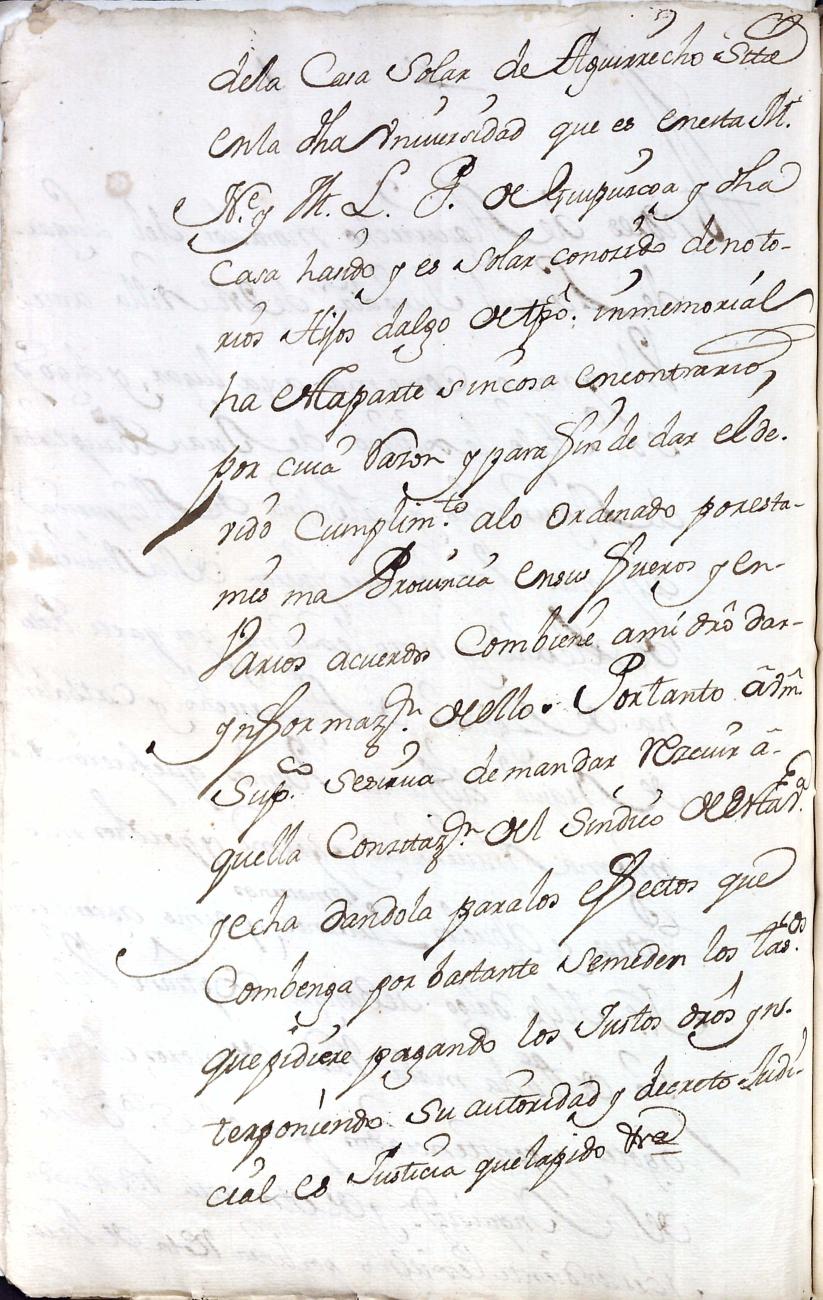 dela Casa Solar de Aguirrecho Sita
enla dha Vniversidad que es enesta M.
N. y M. L. P. de Guipuscoa y dha
Casa hasido y es Solar conosido de noto-
rios Hijos dalgo de tpô. inmemorial
ha estaparte sin cosa encontrario,
por cuia razon y para fin de dar el de.
vido Cumplim.to alo ordenado poresta-
mis ma Provincia ensus fueros y en-
Varios acuerdos Combiene ami drô dar-
ynformaz.n de ello. Portanto à Vm
Sup.co seSirva demandar rezevir â-
quella Con zitaz.n del Sindico de esta V.a
y echa dandola paralos effectos que
Combenga por bastante semeden los tas.dos
quepidiere pagando los Justos drôs yn.
terponiendo su autoridad y decreto Judi-
cial es Justicia quelapido &ra